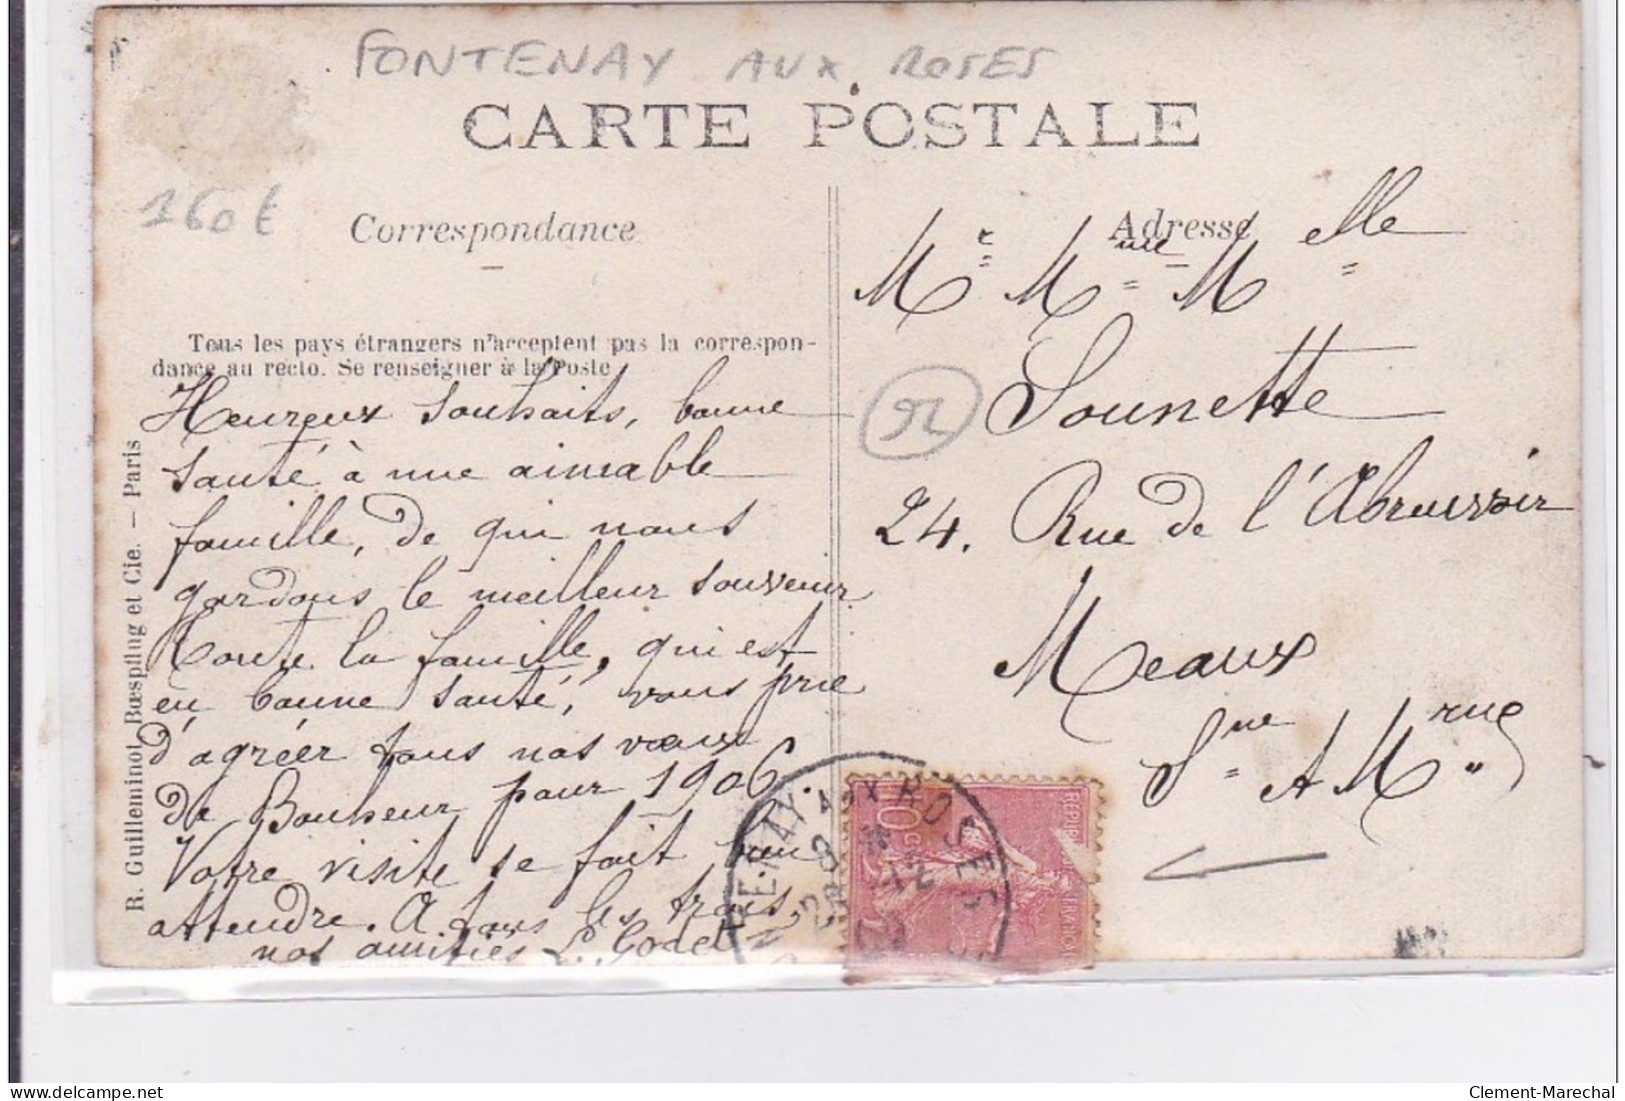 FONTENAY AUX ROSES
CARTE POSTALE
160€
Correspondance
Adresse
Tous les pays étrangers n'acceptent pas la correspon-
dance au recto. Se renseigner à la Poste
R. Guilleminot, Bœspflug et Cie. — Paris
Heureux souhaits, bonne
santé à une aimable
famille, de qui nous
gardons le meilleur souvenir
Toute la famille, qui est
en bonne santé, vous prie
d'agréer tous nos vœux
de Bonheur pour 1906.
Votre visite se fait bien
attendre. A tous les trois,
nos amitiés L. Godet
Mr Mme Melle
Sounette
92
24. Rue de l'Abreuvoir
Meaux
Sne A Mrne
FONTENAY AUX ROSES
10 c
REPUB
FRANÇAI
Clement-Marechal